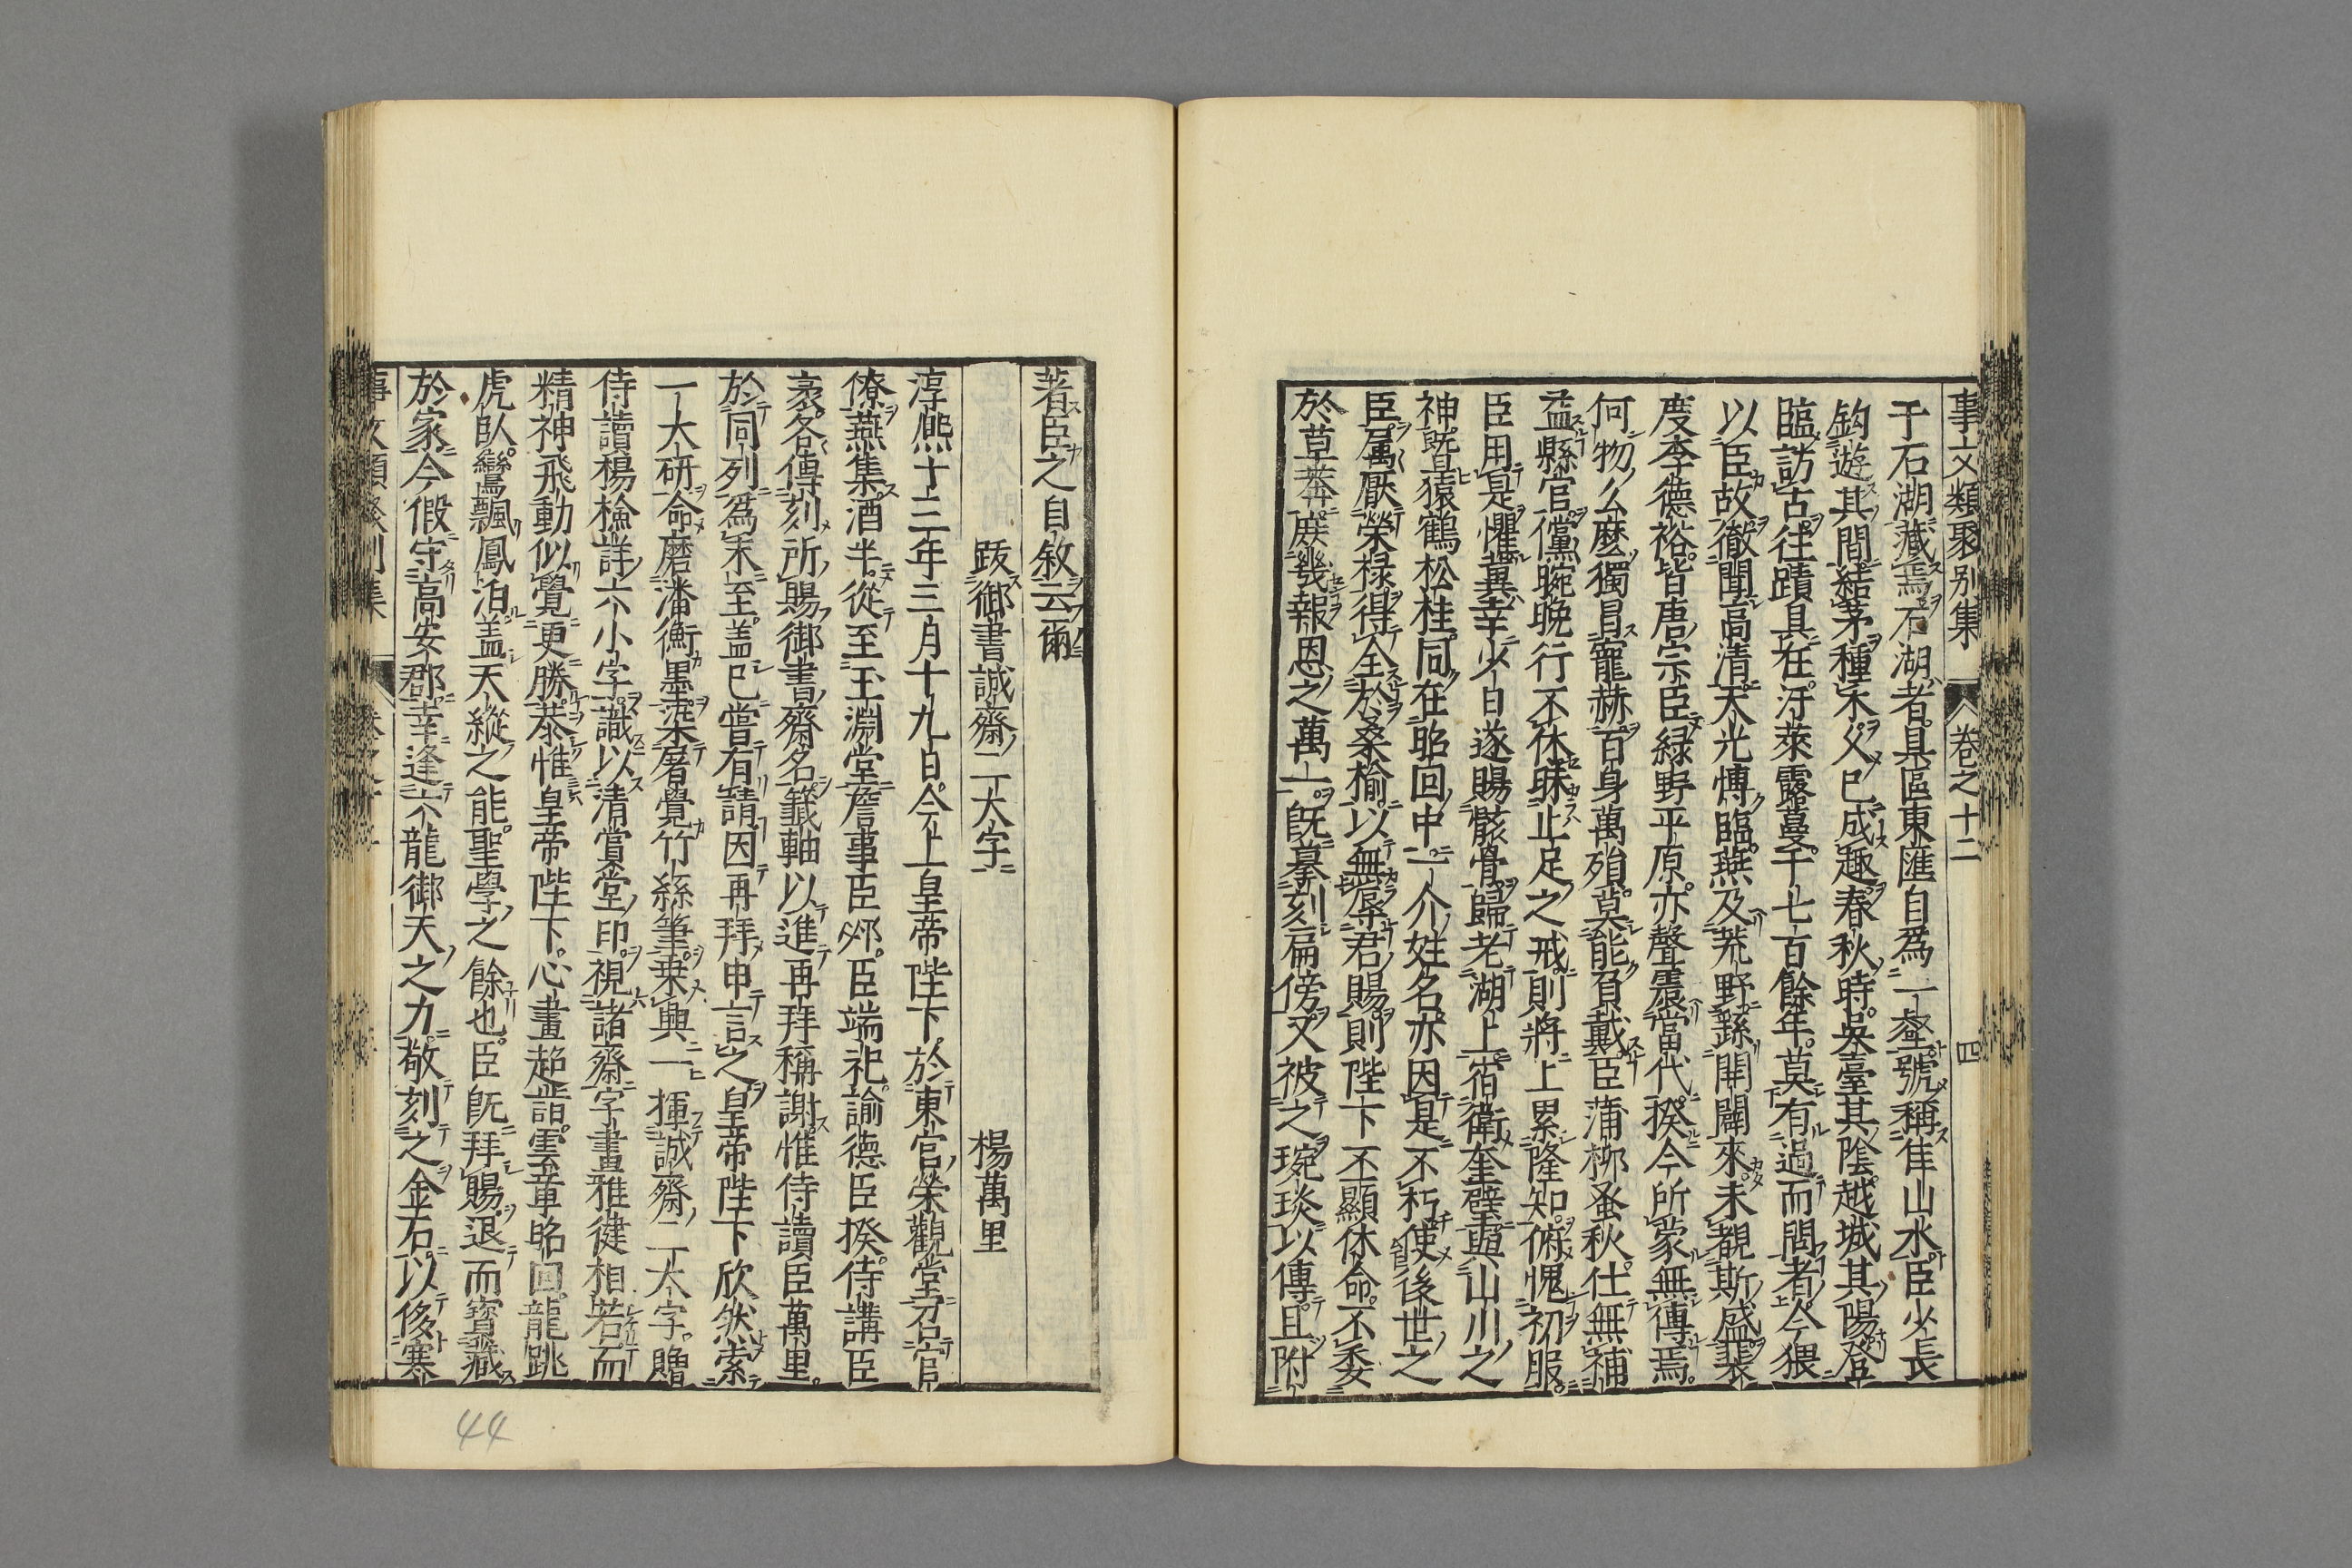 事文類聚别集 卷之十二 四
于石湖藏焉石湖者具區東匯自爲一壑號稱佳山水臣少長
釣遊其間結茅種木久已成趣春秋時吳臺其陰越城其陽登
臨訪古往蹟具在汙萊露蔓千七百餘年莫有過而問者今猥
以臣故徹聞高清天光愽臨燕及荒野繇開闢來未覩斯盛裴
度李德裕皆唐宗臣緑野平原亦聲震當代揆今所蒙無傳焉
何物么麽獨冒寵赫百身萬殞莫能負戴臣蒲柳蚤秋仕無補
益縣官儻晼晚行不休昧止足之戒則將上累隆知俯愧初服
臣用是懼冀幸少日遂賜骸骨歸老湖上宿衛奎璧與山川之
神曁猿鶴松桂同在昭回中一介姓名亦因是不朽使後世之
臣属厭榮禄得全於桑榆以無辱君賜則陛下丕顯休命不委
於草莽庶幾報恩之萬一旣摹刻扁傍又被之琬琰以傳且附
著臣之自敘云爾
跋御書誠齋二大字 楊萬里
淳熈十三年三月十九日今上皇帝陛下於東宮榮觀堂召官
僚燕集酒半從至玉淵堂詹事臣邲臣端祀諭德臣揆侍講臣
袤各傳刻所賜御書齋名籤軸以進再拜稱謝惟侍讀臣萬里
於同列爲未至盖巳嘗有請因再拜申言之皇帝陛下欣然索
一大研命磨潘衡墨染屠覺竹絲筆乗興一揮誠齋二大字贈
侍讀楊檢詳六小字識以清賞堂印視諸齋字畫雅健相若而
精神飛動似覺更勝恭惟皇帝陛下心畫超詣雲章昭回龍跳
虎臥鸞飄鳳泊盖天縱之能聖學之餘也臣旣拜賜退而寶藏
於家今假守高安郡幸逢六龍御天之力敬刻之金石以侈寒
44